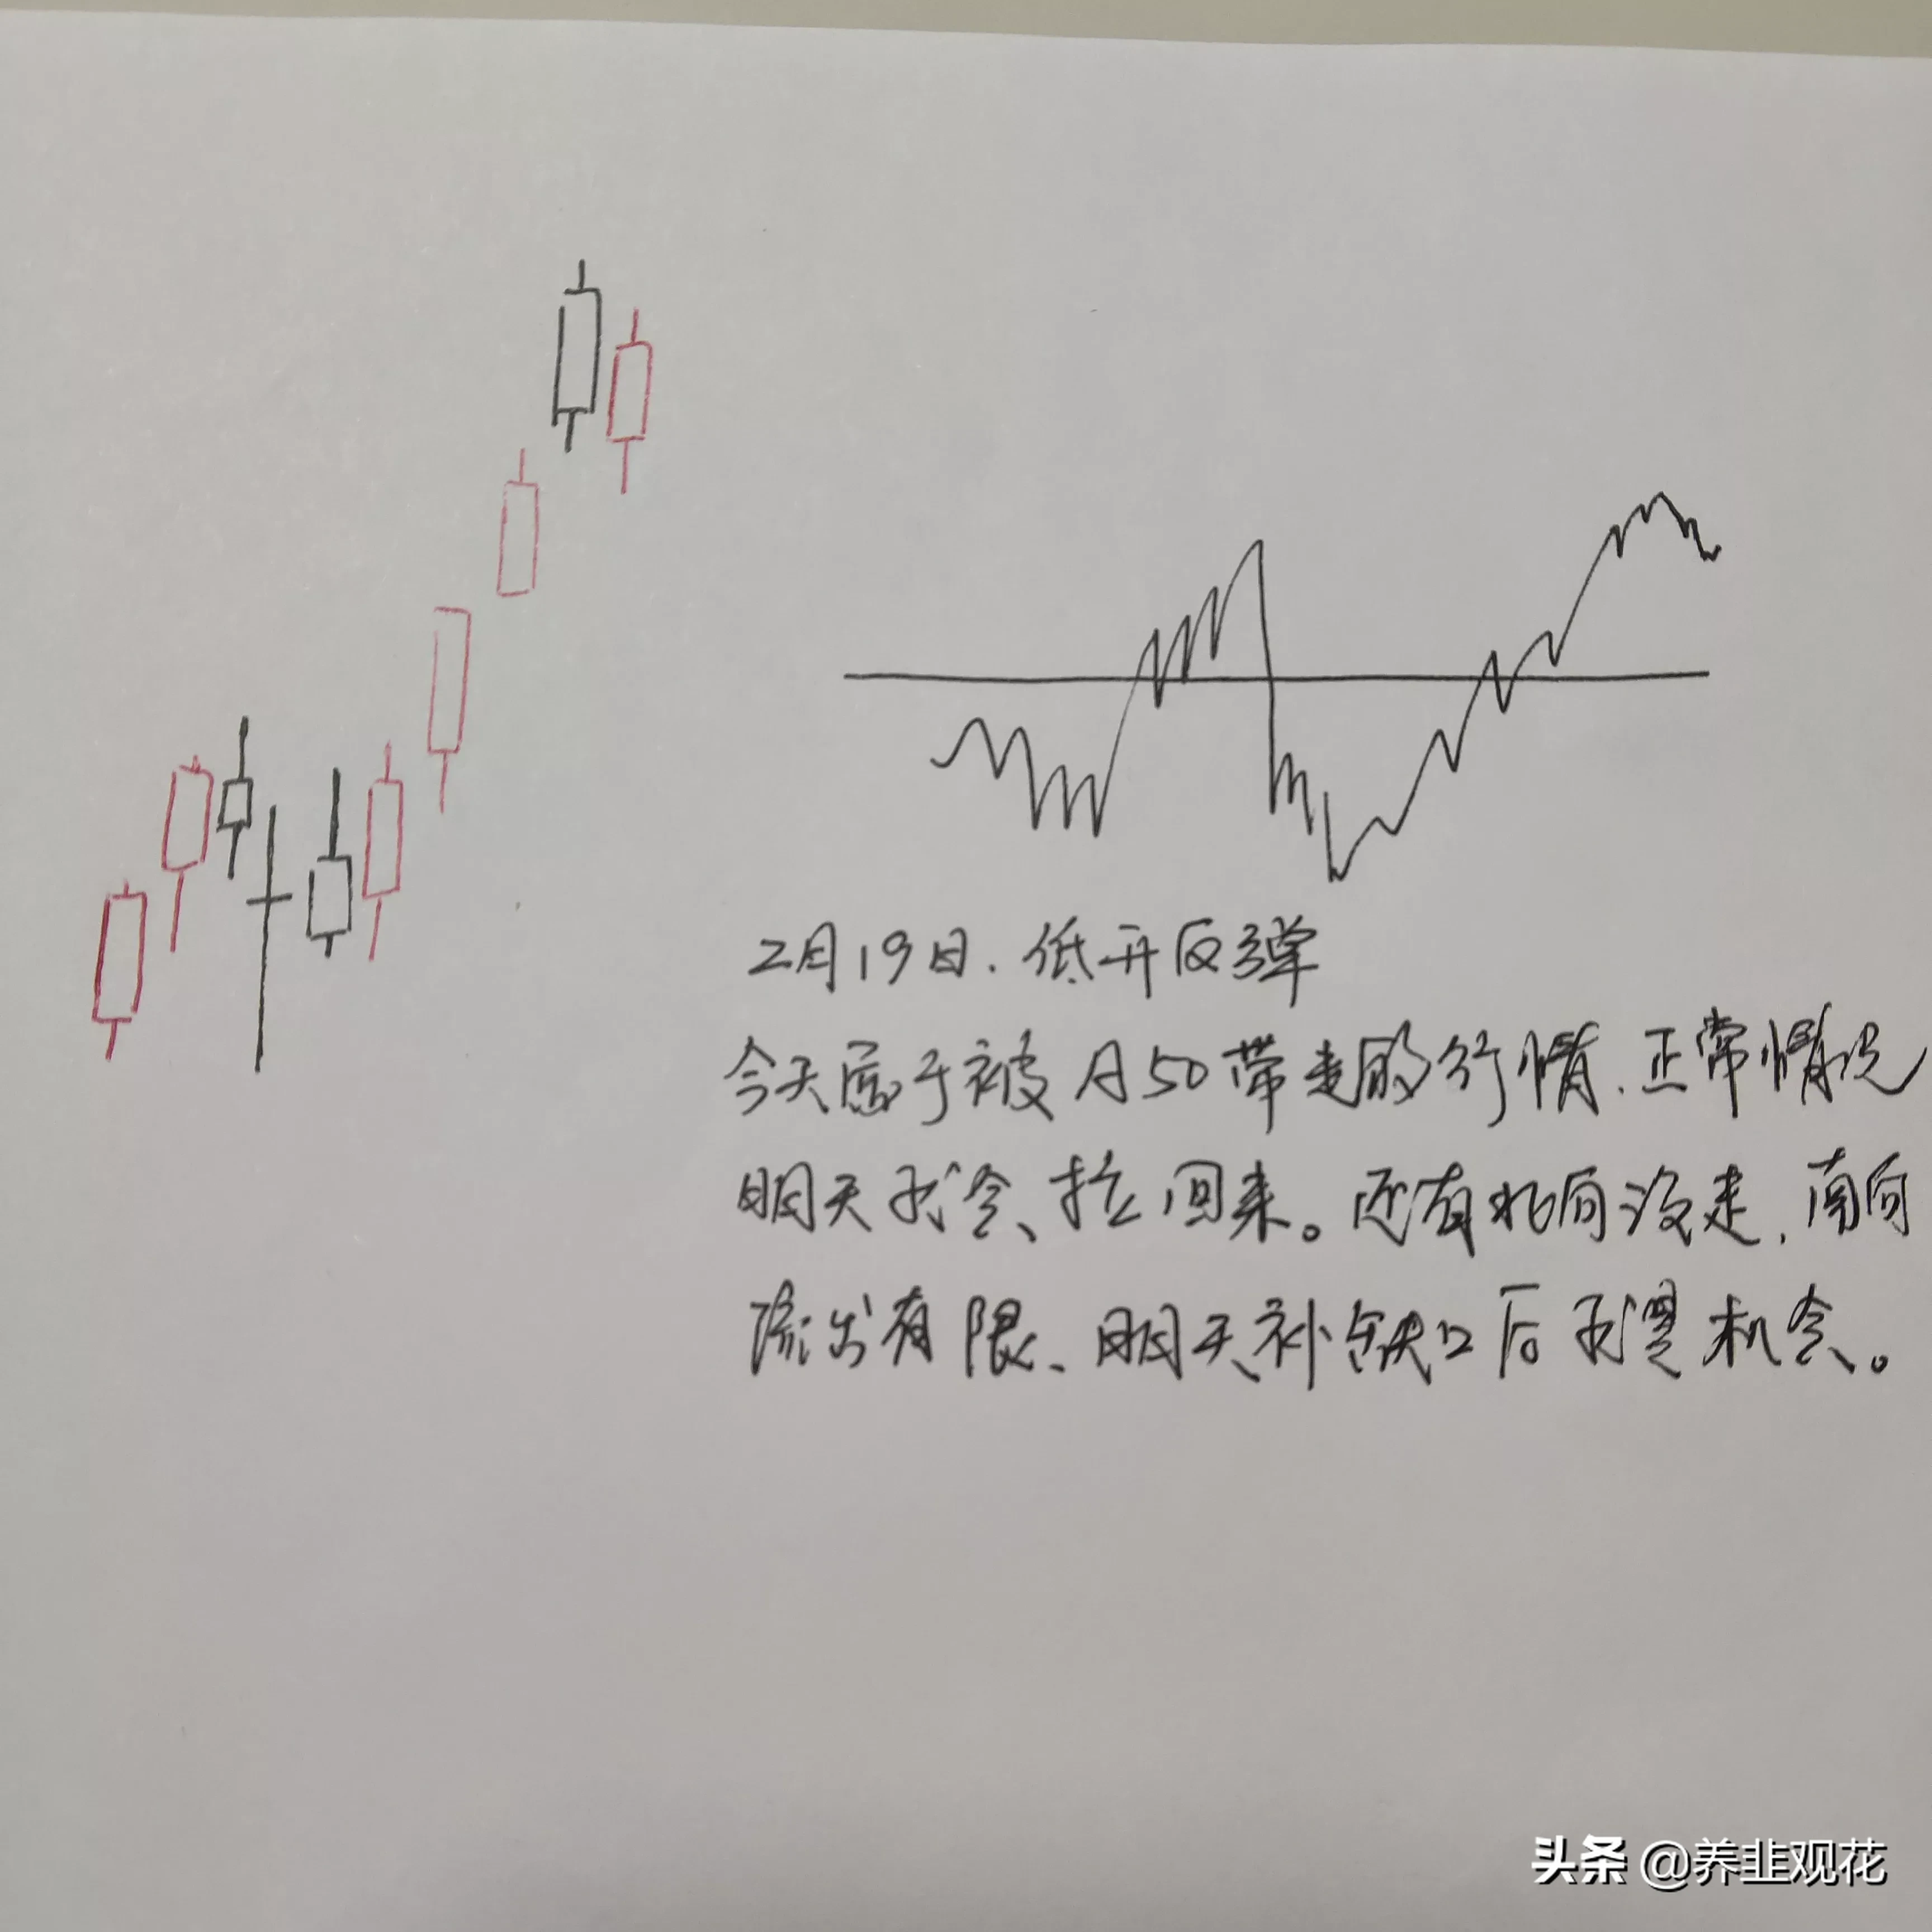 2月19日.低开反弹
今天属于被A50带走的行情.正常情况
明天不会、拉回来。还有北向没走,南向
流出有限、明天补缺口后又是机会。
头条 @养韭观花